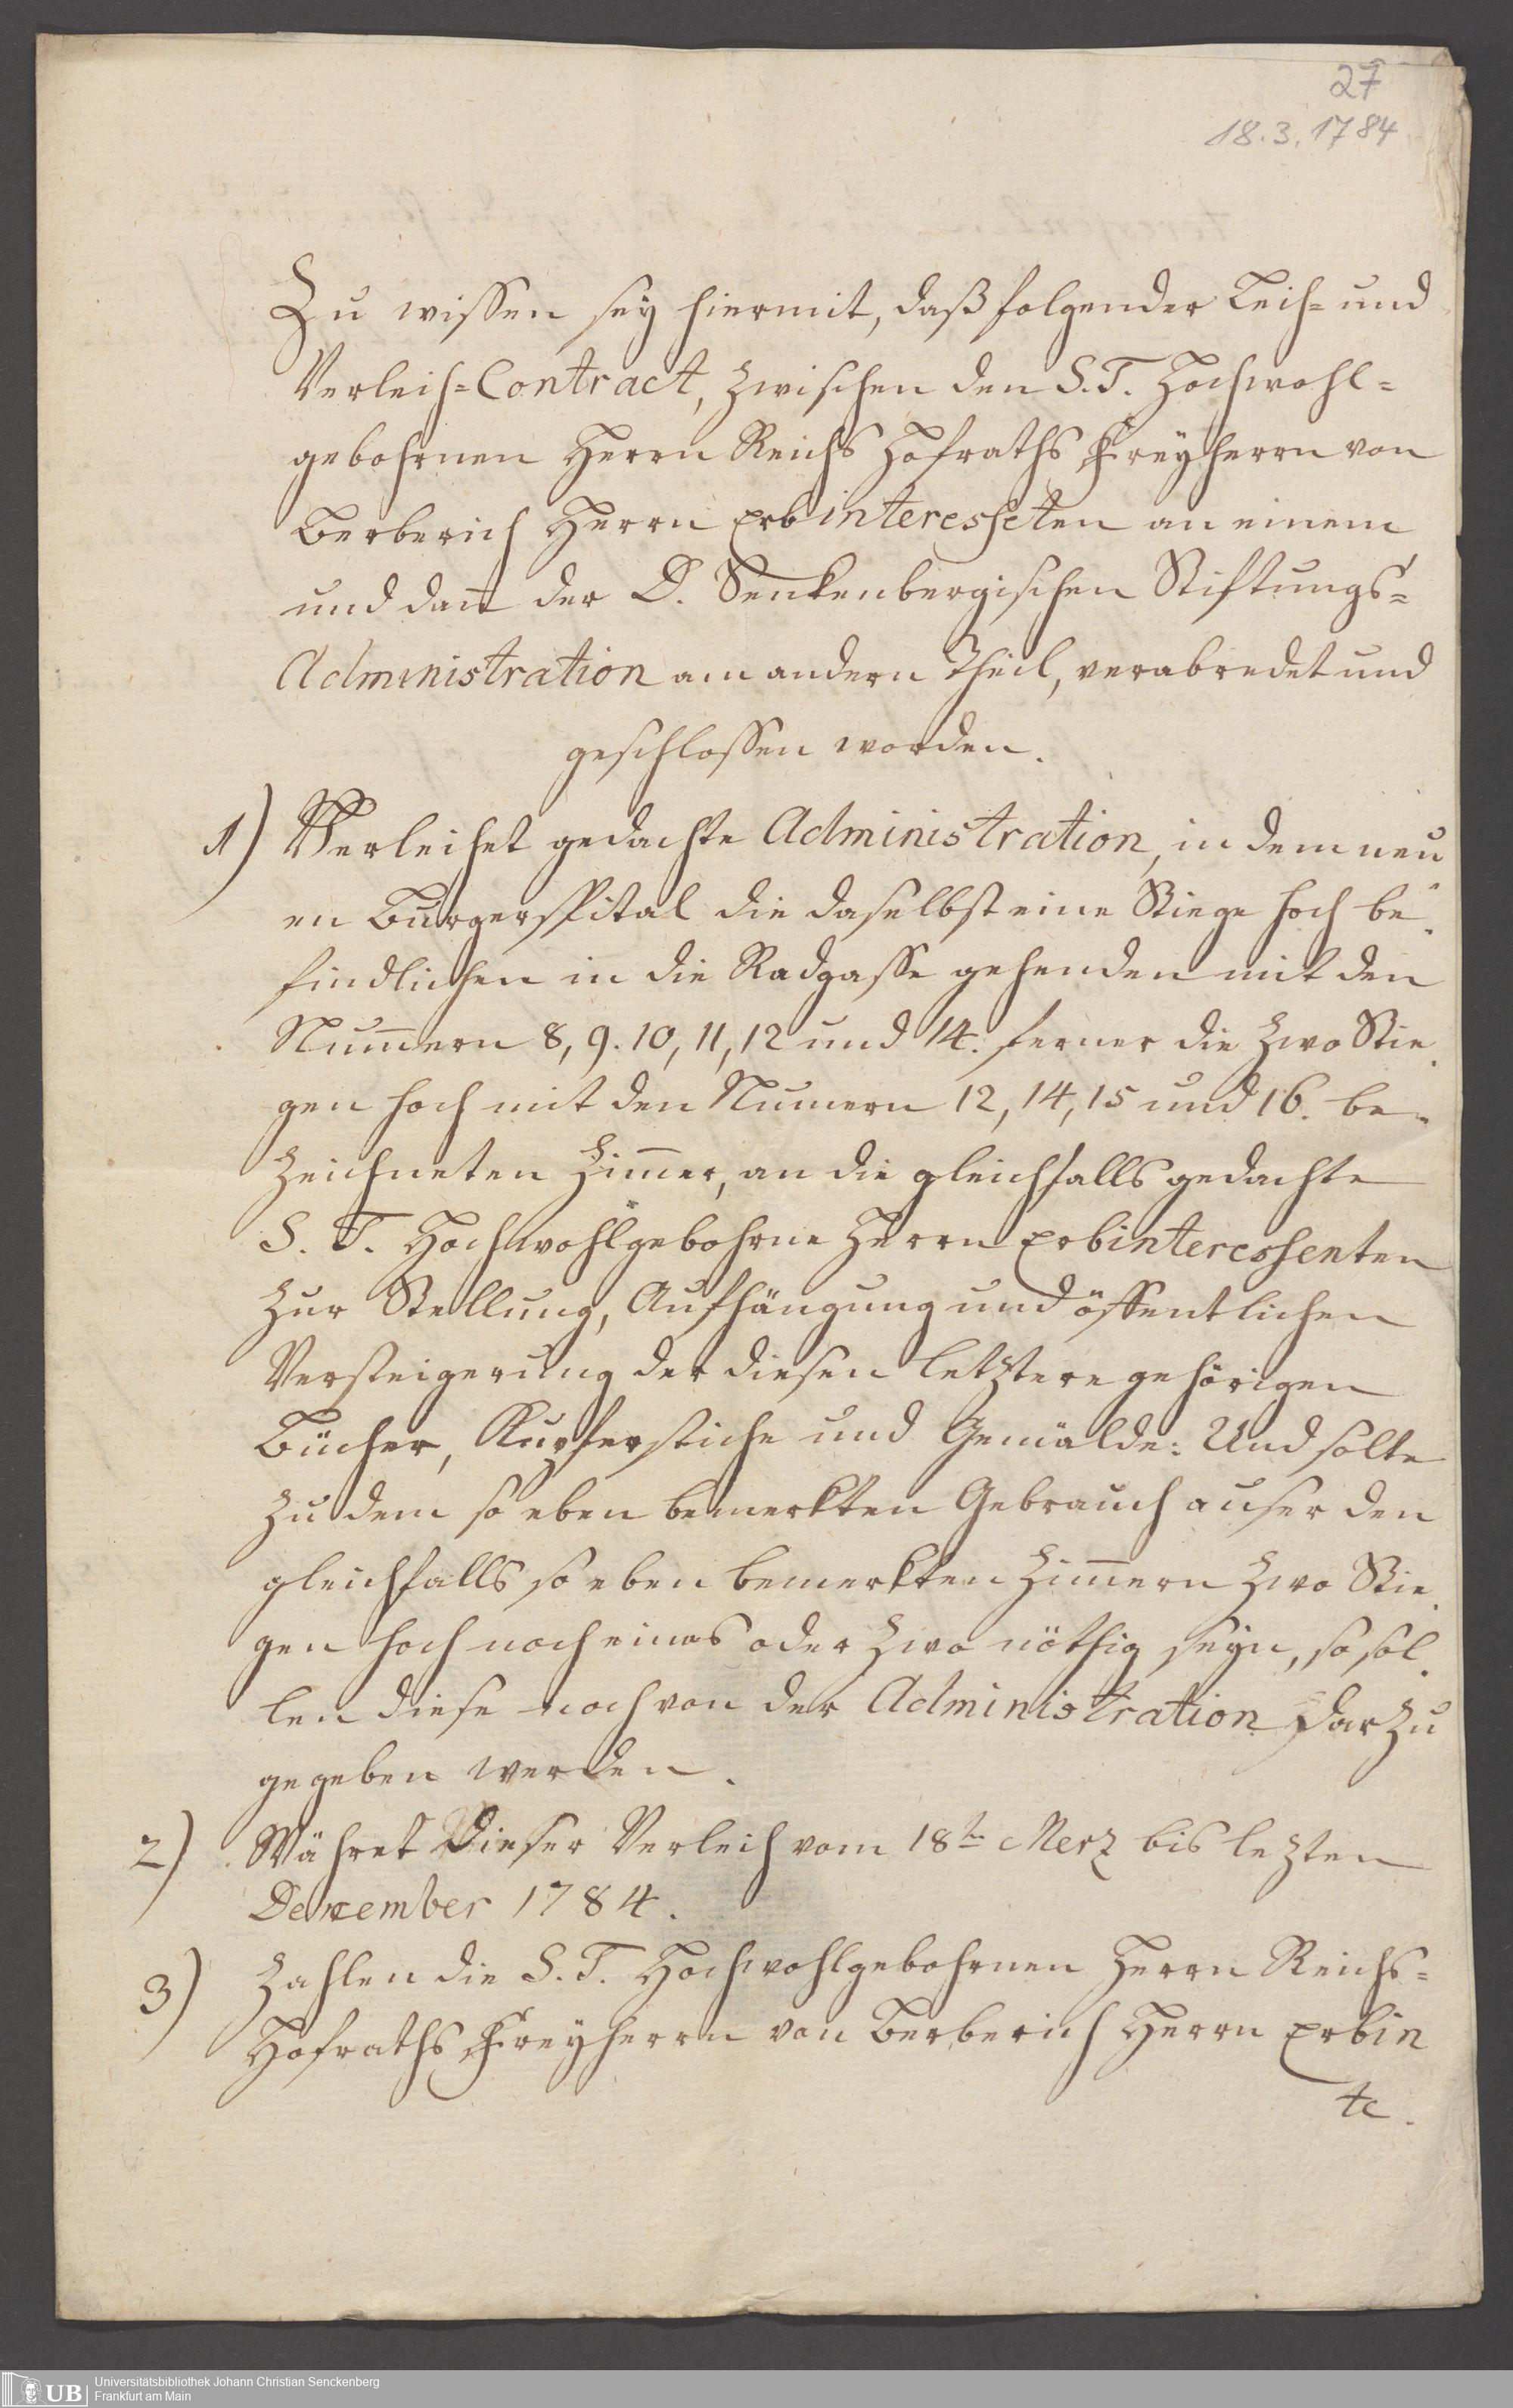 27
18.3.1784
Zu wissen sey hiermit, daß folgender Leih- und
Verleih-Contract, zwischen den S. T. Hochwohl-
gebohrnen Herrn Reichs Hofraths Freyherrn von
Berberich Herrn Erbinteresseten an einem
und dann der D. Senkenbergischen Stiftungs-
Administration am andern Theil, verabredet und
geschlossen worden.
1) Verleihet gedachte Administration, in dem neu
en Burgerspital die daselbst eine Stiege hoch be-
findlichen in die Radgasse gehenden mit den
Num̄ern 8, 9. 10, 11, 12 und 14. ferner die zwo Stie-
gen hoch mit den Numern 12, 14, 15 und 16. be-
zeichneten Zim̄er, an die gleichfalls gedachte
S. T. Hochwohlgebohrne Herrn Erbinteressenten
zur Stellung, Aufhängung und öffentlichen
Versteigerung der diesen letztere gehörigen
Bücher, Kupferstiche und Gemälde: Und solte
zu dem so eben bemerkten Gebrauch auser den
gleichfalls so eben bemerkten Zim̄ern zwo Stie-
gen hoch noch eines oder zwo nöthig seyn, so sol-
len diese noch von der Administration darzu
gegeben werden.
2) Währet dieser Verleih vom 18ten Merz bis lezten
December 1784.
3) Zahlen die S. T. Hochwohlgebohrnen Herrn Reichs-
Hofraths Freyherrn von Berberich Herrn Erbin
te.
UB
Universitätsbibliothek Johann Christian Senckenberg
Frankfurt am Main